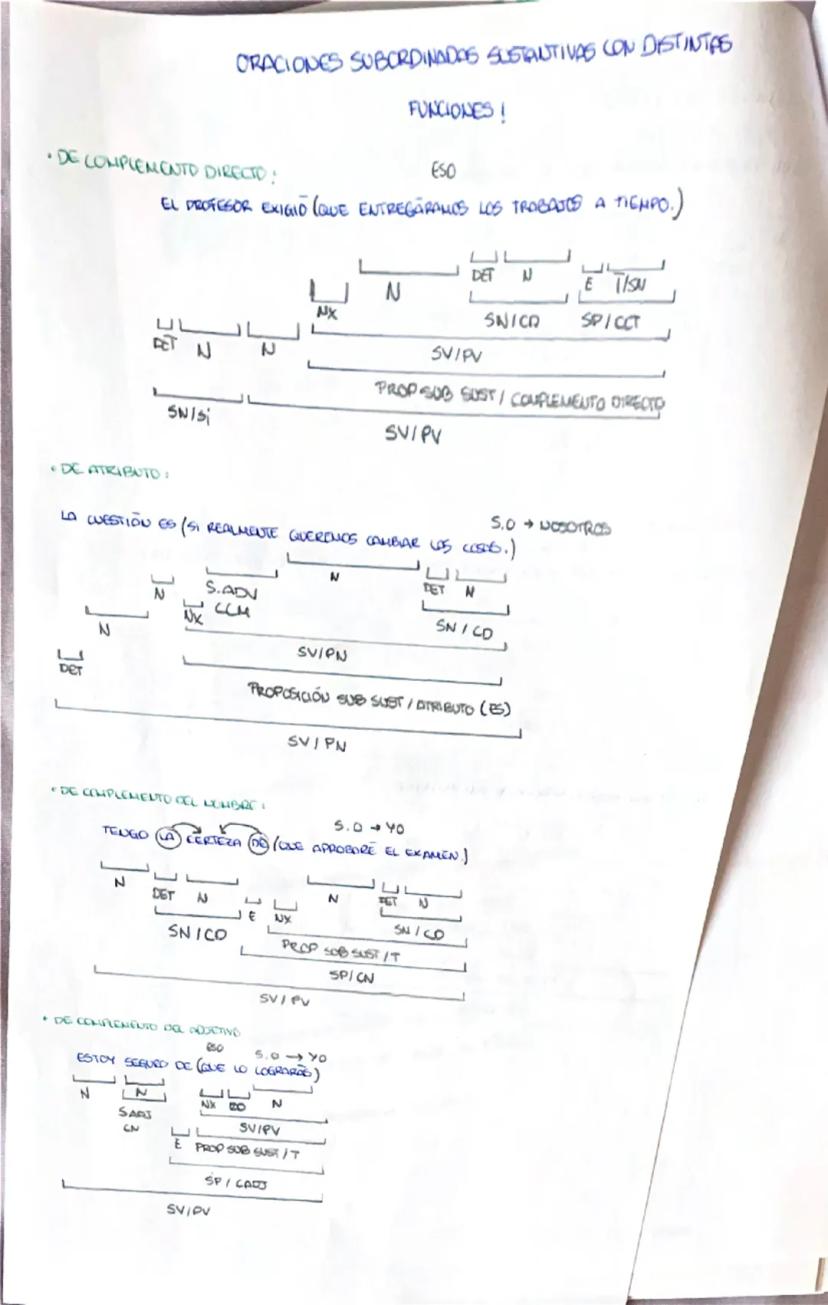 ORACIONES SUBORDINADAS SUSTANTIVAS CON DISTINTAS
FUNCIONES!
• DE COMPLEMENTO DIRECTO:
ESO
EL PROFESOR EXIGIÓ (QUE ENTREGÁRAMOS LOS TRABAJOS A TIEMPO.)
DET N
E T/SN
NX N
SN/CD SP/CCT
DET N N
SV/PV
PROP SUB SUST / COMPLEMENTO DIRECTO
SN/Si
SV/PV
• DE ATRIBUTO:
S.O → NOSOTROS
LA CUESTIÓN ES (SI REALMENTE QUEREMOS CAMBIAR LAS COSAS.)
N S.ADV N DET N
NX CCM
N SN/CD
SV/PN
DET
PROPOSICIÓN SUB SUST / ATRIBUTO (ES)
SV/PN
• DE COMPLEMENTO DEL NOMBRE:
S.O → YO
TENGO LA CERTEZA DE (QUE APROBARÉ EL EXAMEN.)
N DET N E NX N DET N
SN/CD SN/CD
PROP SUB SUST/T
SP/CN
SV/PV
• DE COMPLEMENTO DEL ADJETIVO
ESO S.O → YO
ESTOY SEGURO DE (QUE LO LOGRARÁS)
N N NX N
SADJ
CN SV/PV
E PROP SUB SUST/T
SP/CADJ
SV/PV